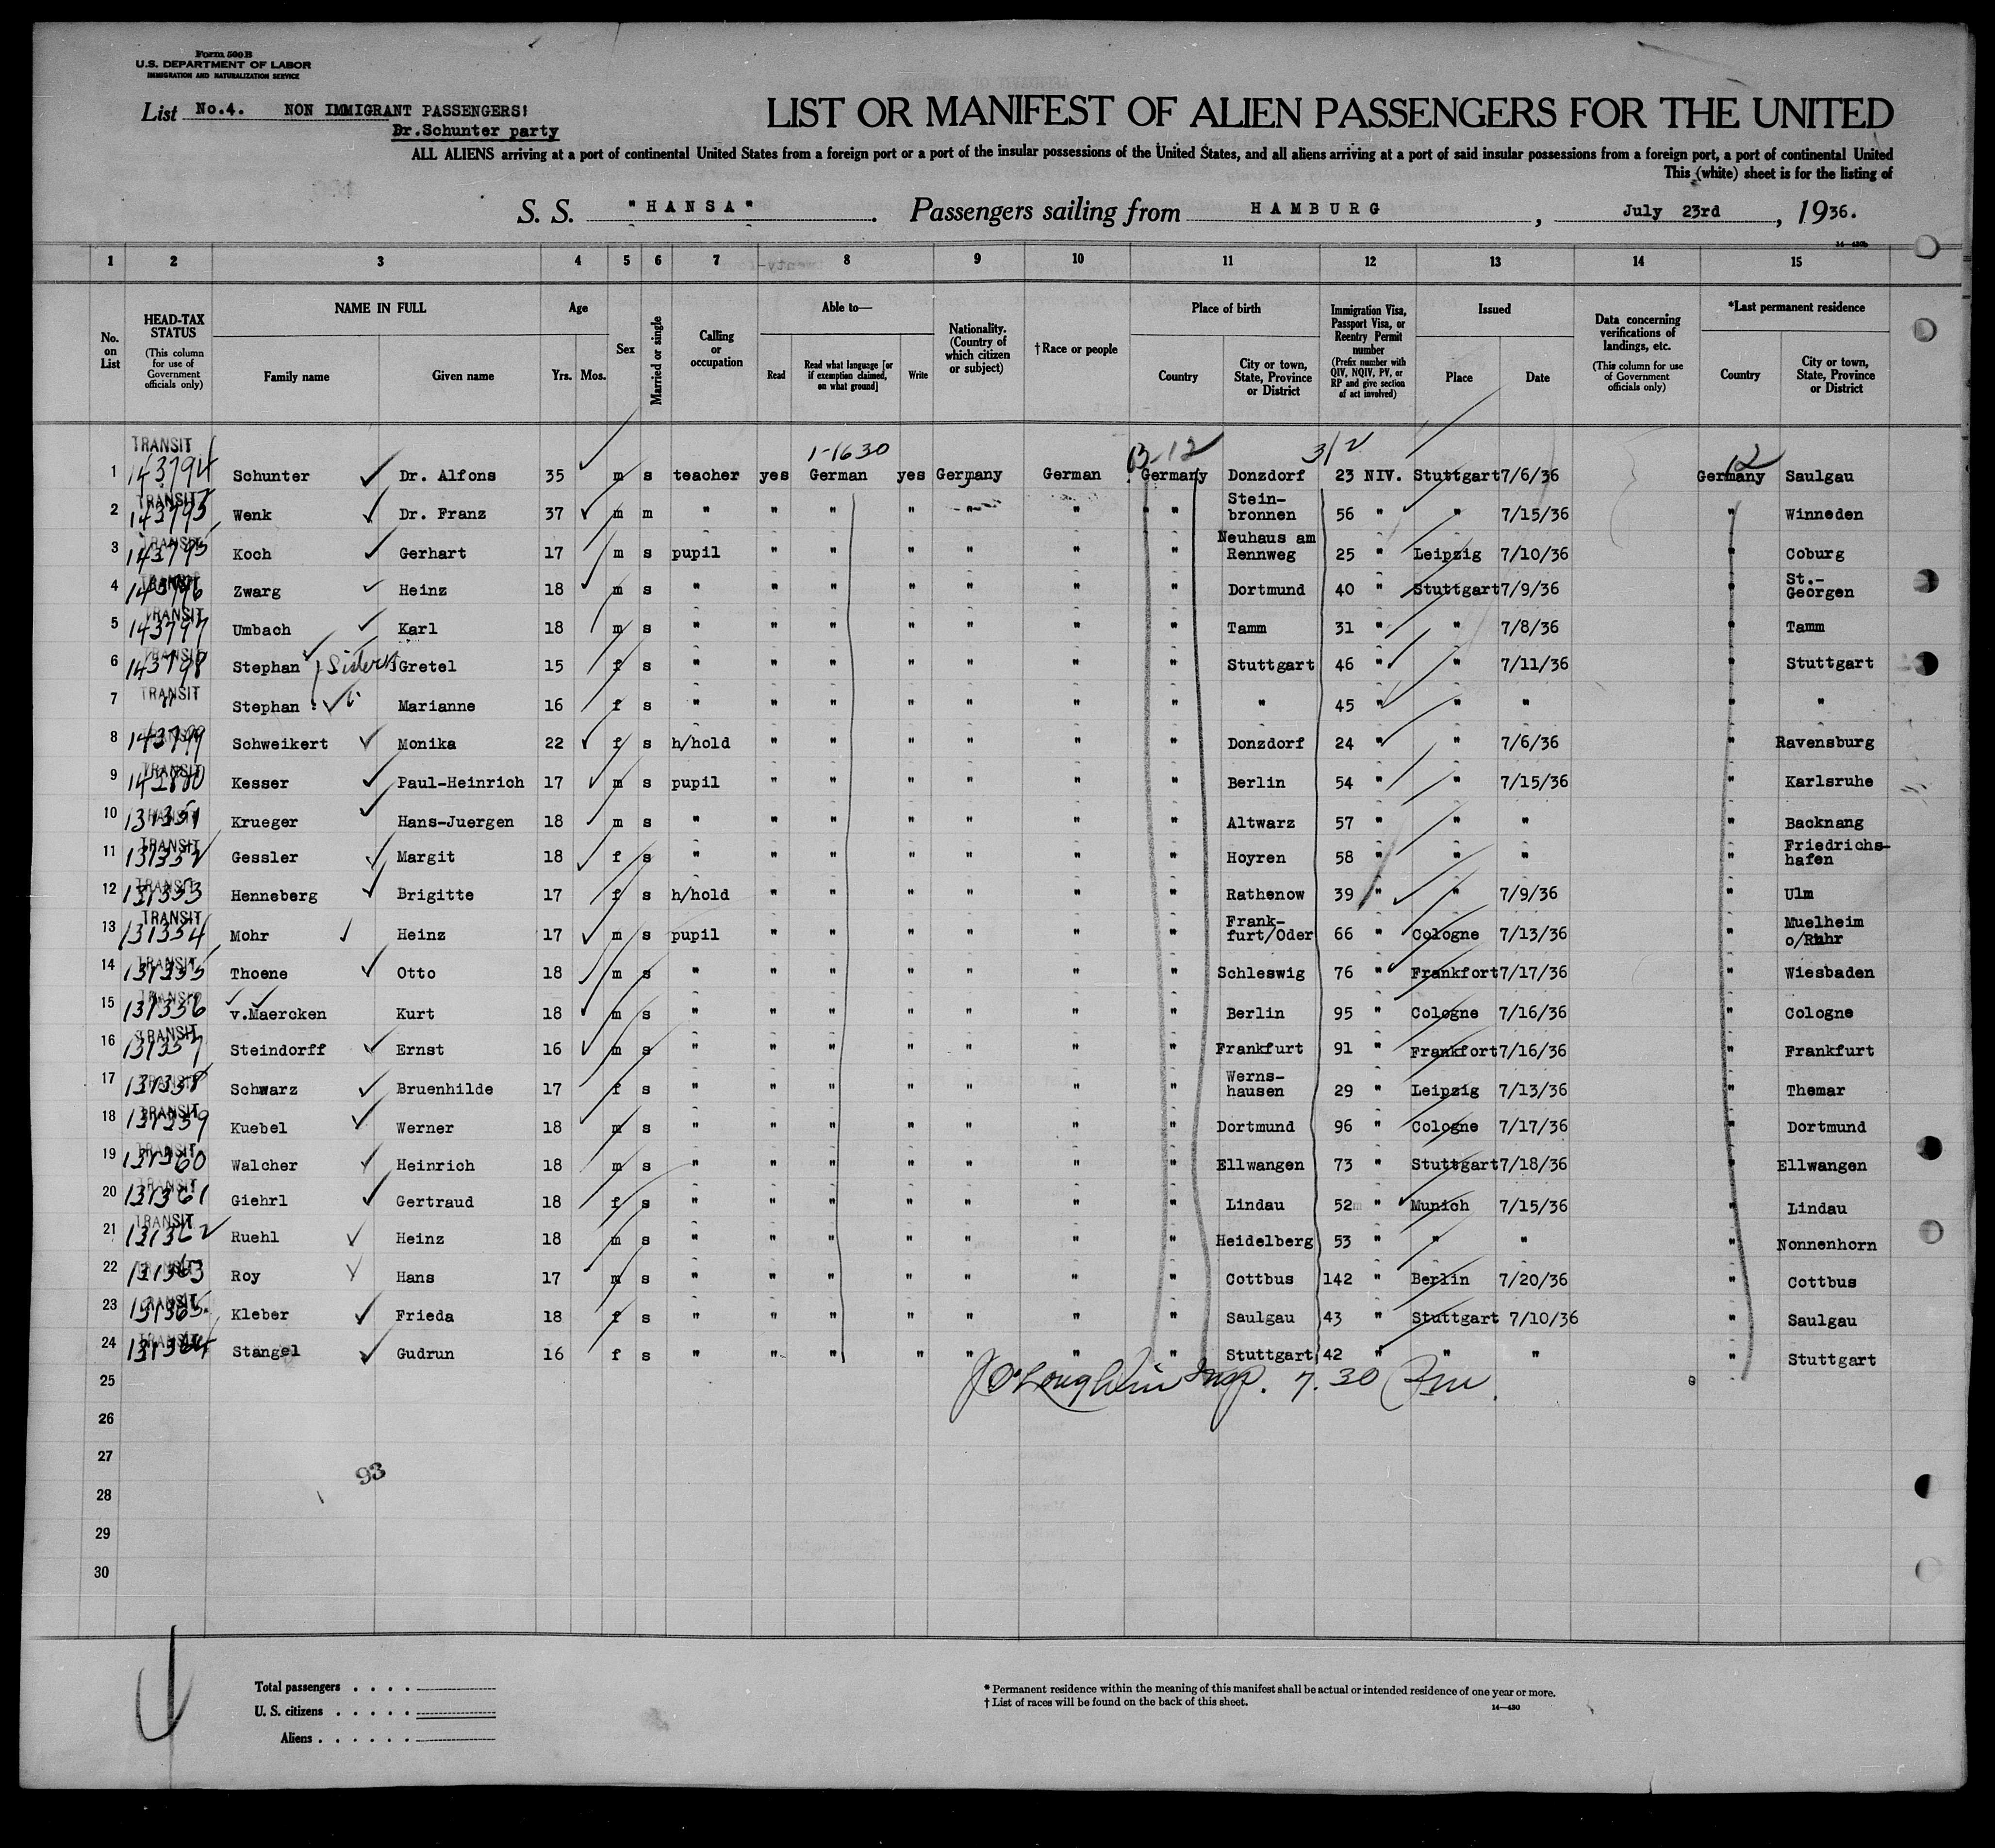 Form 500 B
U.S. DEPARTMENT OF LABOR
IMMIGRATION AND NATURALIZATION SERVICE
List No.4. NON IMMIGRANT PASSENGERS!
Dr.Schunter party
LIST OR MANIFEST OF ALIEN PASSENGERS FOR THE UNITED
ALL ALIENS arriving at a port of continental United States from a foreign port or a port of the insular possessions of the United States, and all aliens arriving at a port of said insular possessions from a foreign port, a port of continental United
This (white) sheet is for the listing of
S. S. "HANSA". Passengers sailing from HAMBURG, July 23rd, 1936.
14—430b
1 2 3 4 5 6 7 8 9 10 11 12 13 14 15
No. on List
HEAD-TAX STATUS (This column for use of Government officials only)
NAME IN FULL
Family name Given name
Age
Yrs. Mos.
Sex
Married or single
Calling or occupation
Able to—
Read Read what language [or if exemption claimed, on what ground] Write
Nationality. (Country of which citizen or subject)
†Race or people
Place of birth
Country City or town, State, Province or District
Immigration Visa, Passport Visa, or Reentry Permit number (Prefix number with QIV, NQIV, PV, or RP and give section of act involved)
Issued
Place Date
Data concerning verifications of landings, etc. (This column for use of Government officials only)
*Last permanent residence
Country City or town, State, Province or District
1-1630 B-12 3/2 12
1 TRANSIT 143794 Schunter Dr. Alfons 35 m s teacher yes German yes Germany German Germany Donzdorf 23 NIV. Stuttgart 7/6/36 Germany Saulgau
2 TRANSIT 143795 Wenk Dr. Franz 37 m m " " " " " " " Stein-bronnen 56 " " 7/15/36 " Winneden
3 TRANSIT 143795 Koch Gerhart 17 m s pupil " " " " " " Neuhaus am Rennweg 25 " Leipzig 7/10/36 " Coburg
4 TRANSIT 143796 Zwarg Heinz 18 m s " " " " " " " Dortmund 40 " Stuttgart 7/9/36 " St.-Georgen
5 TRANSIT 143797 Umbach Karl 18 m s " " " " " " " Tamm 31 " " 7/8/36 " Tamm
6 TRANSIT 143798 Stephan Sisters Gretel 15 f s " " " " " " " Stuttgart 46 " " 7/11/36 " Stuttgart
7 TRANSIT " Stephan Marianne 16 f s " " " " " " " " 45 " " " " "
8 TRANSIT 143799 Schweikert Monika 22 f s h/hold " " " " " " Donzdorf 24 " " 7/6/36 " Ravensburg
9 TRANSIT Kesser Paul-Heinrich 17 m s pupil " " " " " " Berlin 54 " " 7/15/36 " Karlsruhe
10 TRANSIT 131351 Krueger Hans-Juergen 18 m s " " " " " " " Altwarz 57 " " " " Backnang
11 TRANSIT 131352 Gessler Margit 18 f s " " " " " " " Hoyren 58 " " " " Friedrichs-hafen
12 TRANSIT 131353 Henneberg Brigitte 17 f s h/hold " " " " " " Rathenow 39 " " 7/9/36 " Ulm
13 TRANSIT 131354 Mohr Heinz 17 m s pupil " " " " " " Frank-furt/Oder 66 " Cologne 7/13/36 " Muelheim o/Ruhr
14 TRANSIT 131355 Thoene Otto 18 m s " " " " " " " Schleswig 76 " Frankfort 7/17/36 " Wiesbaden
15 TRANSIT 131356 v.Maercken Kurt 18 m s " " " " " " " Berlin 95 " Cologne 7/16/36 " Cologne
16 TRANSIT 131357 Steindorff Ernst 16 m s " " " " " " " Frankfurt 91 " Frankfort 7/16/36 " Frankfurt
17 TRANSIT 131358 Schwarz Bruenhilde 17 f s " " " " " " " Werns-hausen 29 " Leipzig 7/13/36 " Themar
18 TRANSIT 131359 Kuebel Werner 18 m s " " " " " " " Dortmund 96 " Cologne 7/17/36 " Dortmund
19 TRANSIT 131360 Walcher Heinrich 18 m s " " " " " " " Ellwangen 73 " Stuttgart 7/18/36 " Ellwangen
20 TRANSIT 131361 Giehrl Gertraud 18 f s " " " " " " " Lindau 52 " Munich 7/15/36 " Lindau
21 TRANSIT 131362 Ruehl Heinz 18 m s " " " " " " " Heidelberg 53 " " " " Nonnenhorn
22 TRANSIT 131363 Roy Hans 17 m s " " " " " " " Cottbus 142 " Berlin 7/20/36 " Cottbus
23 TRANSIT 131365 Kleber Frieda 18 f s " " " " " " " Saulgau 43 " Stuttgart 7/10/36 " Saulgau
24 TRANSIT 131364 Stangel Gudrun 16 f s " " " " " " " Stuttgart 42 " " " " Stuttgart
25 J O'Loughlin Insp. 7.30 Pm.
26
27
93
28
29
30
Total passengers
U. S. citizens
Aliens
* Permanent residence within the meaning of this manifest shall be actual or intended residence of one year or more.
† List of races will be found on the back of this sheet.
14—430